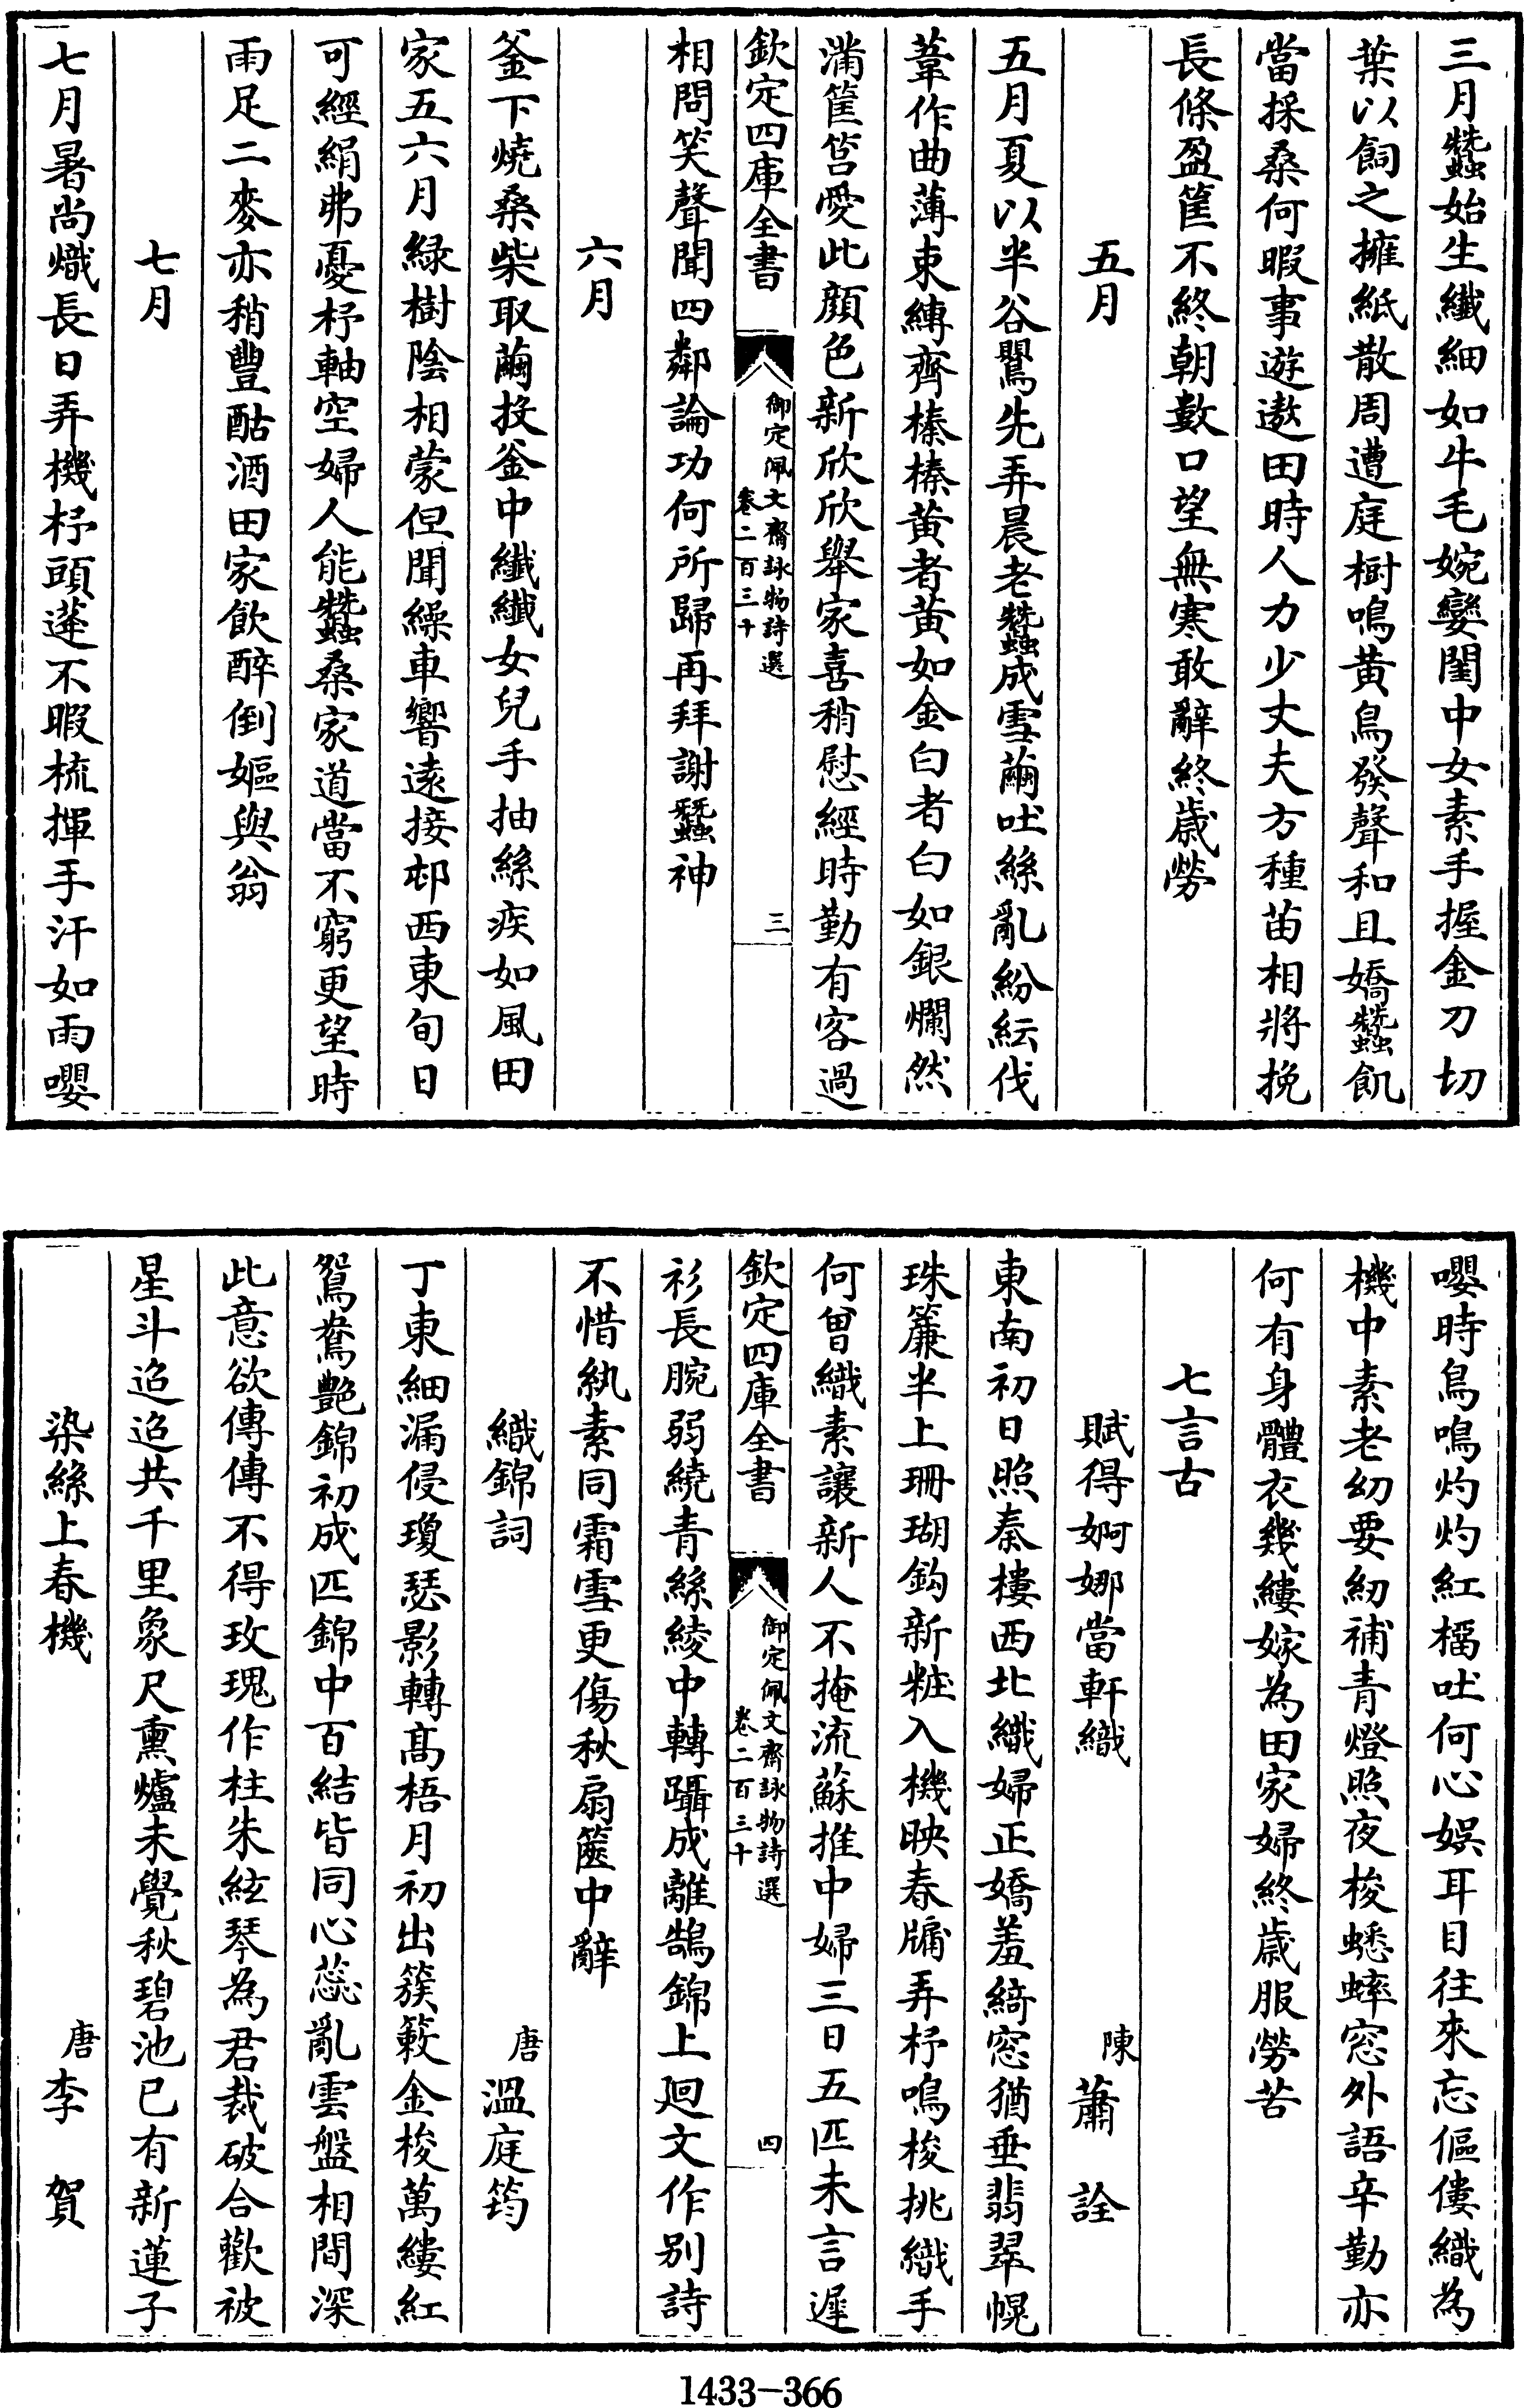 三月蠶始生纖細如牛毛婉孌閨中女素手握金刀切
葉以飼之擁紙散周遭庭樹鳴黃鳥發聲和且嬌蠶飢
當採桑何暇事遊遨田時人力少丈夫方種苗相將挽
長條盈筐不終朝數口望無寒敢辭終歲勞
五月
五月夏以半谷鶯先弄晨老蠶成雪繭吐絲亂紛紜伐
葦作曲薄束縳齊榛榛黃者黃如金白者白如銀爛然
滿筐筥愛此顔色新欣欣舉家喜稍慰經時勤有客過
欽定四庫全書
御定佩文齋詠物詩選
卷二百三十
三
相問笑聲聞四鄰論功何所歸再拜謝蠶神
六月
釜下燒桑柴取繭投釜中纖纖女兒手抽絲疾如風田
家五六月緑樹陰相蒙但聞繰車響遠接邨西東旬日
可經絹弗憂杼軸空婦人能蠶桑家道當不窮更望時
雨足二麥亦稍豐酤酒田家飲醉倒嫗與翁
七月
七月暑尚熾長日弄機杼頭蓬不暇梳揮手汗如雨嚶
嚶時鳥鳴灼灼紅榴吐何心娛耳目往來忘傴僂織為
機中素老幼要紉補青燈照夜梭蟋蟀窓外語辛勤亦
何有身體衣幾縷嫁為田家婦終歲服勞苦
七言古
賦得婀娜當軒織
陳蕭詮
東南初日照秦樓西北織婦正嬌羞綺窓猶垂翡翠幌
珠簾半上珊瑚鈎新粧入機映春牖弄杼鳴梭挑織手
何曾織素讓新人不掩流蘇推中婦三日五匹未言遲
欽定四庫全書
御定佩文齋詠物詩選
卷二百三十
四
衫長腕弱繞青絲綾中轉躡成離鵠錦上廻文作别詩
不惜紈素同霜雪更傷秋扇篋中辭
織錦詞
唐溫庭筠
丁東細漏侵瓊瑟影轉髙梧月初出簇簌金梭萬縷紅
鴛鴦艷錦初成匹錦中百結皆同心蕊亂雲盤相間深
此意欲傳傳不得玫瑰作柱朱絃琴為君裁破合歡被
星斗迢迢共千里象尺熏爐未覺秋碧池已有新蓮子
染絲上春機
唐李賀
1433-366